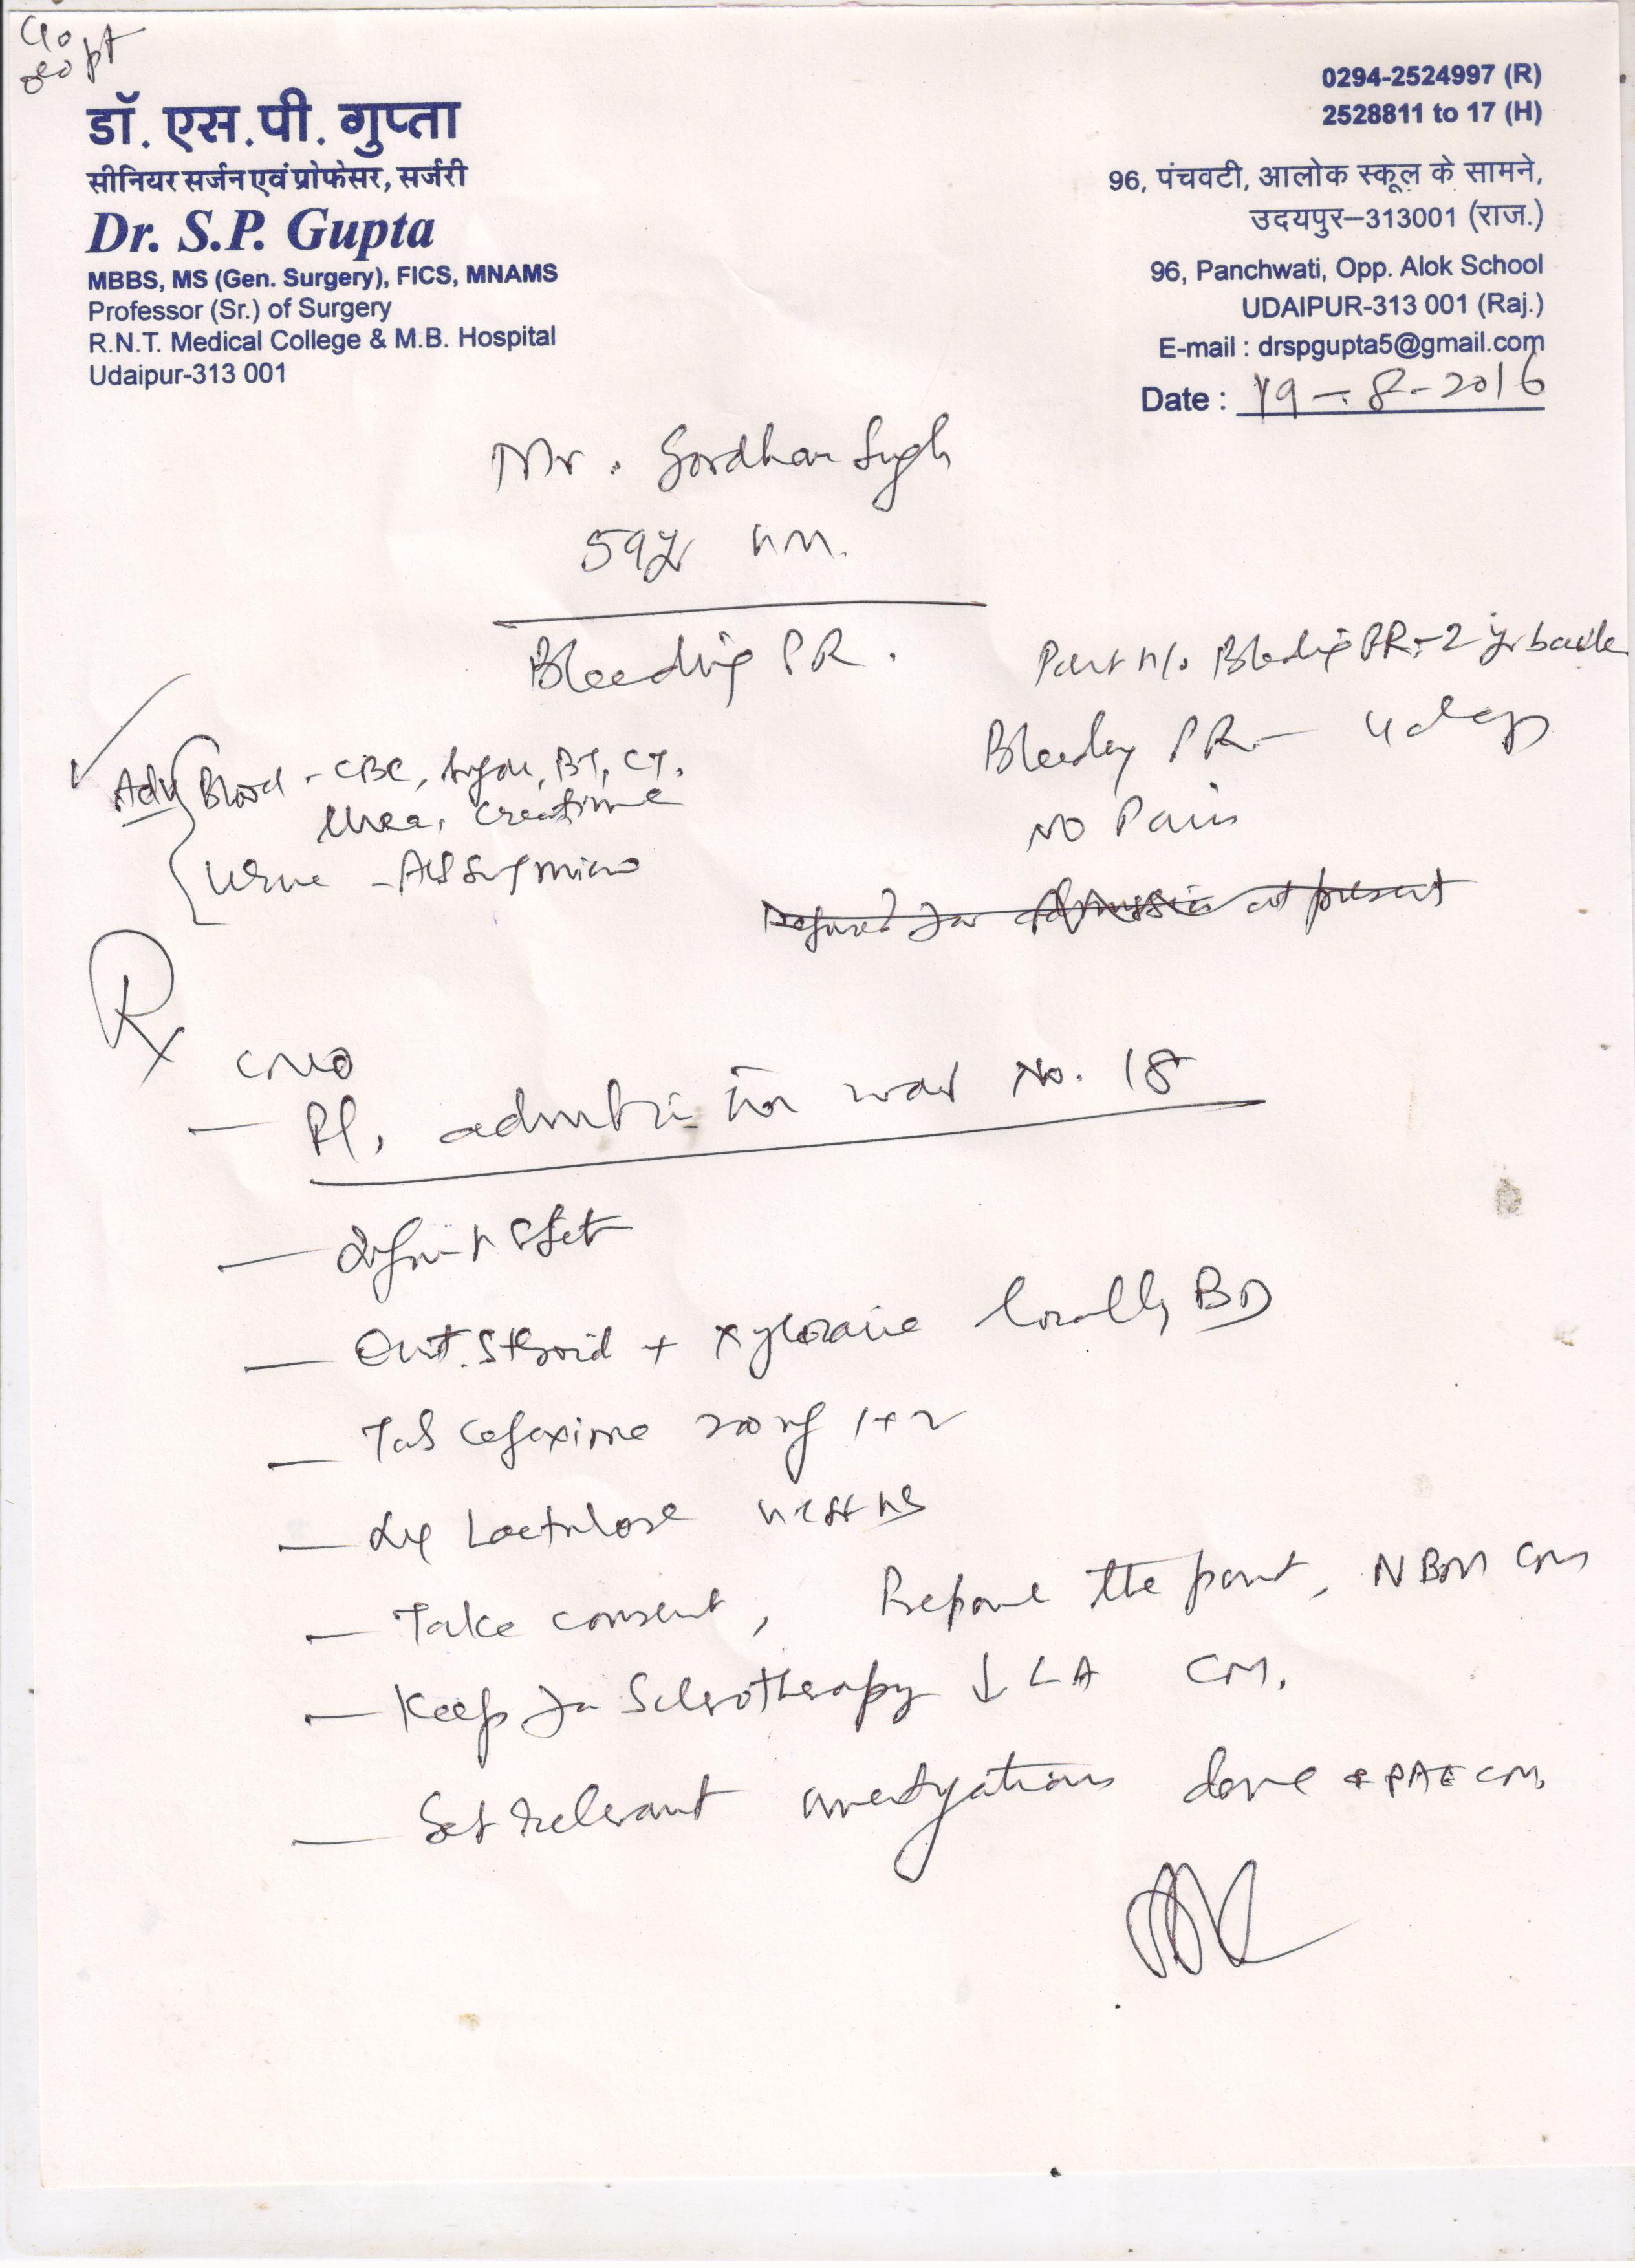 डॉ. एस.पी. गुप्ता
सीनियर सर्जन एवं प्रोफेसर, सर्जरी
Dr. S.P. Gupta
MBBS, MS (Gen. Surgery), FICS, MNAMS
Professor (Sr.) of Surgery
R.N.T. Medical College & M.B. Hospital
Udaipur-313 001
0294-2524997 (R)
2528811 to 17 (H)
96, पंचवटी, आलोक स्कूल के सामने,
उदयपुर–313001 (राज.)
96, Panchwati, Opp. Alok School
UDAIPUR-313 001 (Raj.)
E-mail : drspgupta5@gmail.com
Date : 19-8-2016
Mr. Gordhan Singh
59y
Bleeding PR.
Past H/o Bleeding PR - 2 yr back
Bleeding PR - 4 days
No Pain
Adv Blood - CBC, Sugar, BT, CT,
Urea, Creatinine
Urine - Alb Sug micro
Refused for admission at present
Rx
CMO
- Pl. admit in ward No. 18
-
- Oint. Steroid + xylocaine locally BD
- Tab Cefixime 200mg
- Lactulose HS
- Take consent, Prepare the part, NBM CM
- Keep for Sclerotherapy ↓ LA CM.
- Get relevant investigations done & PAE CM.